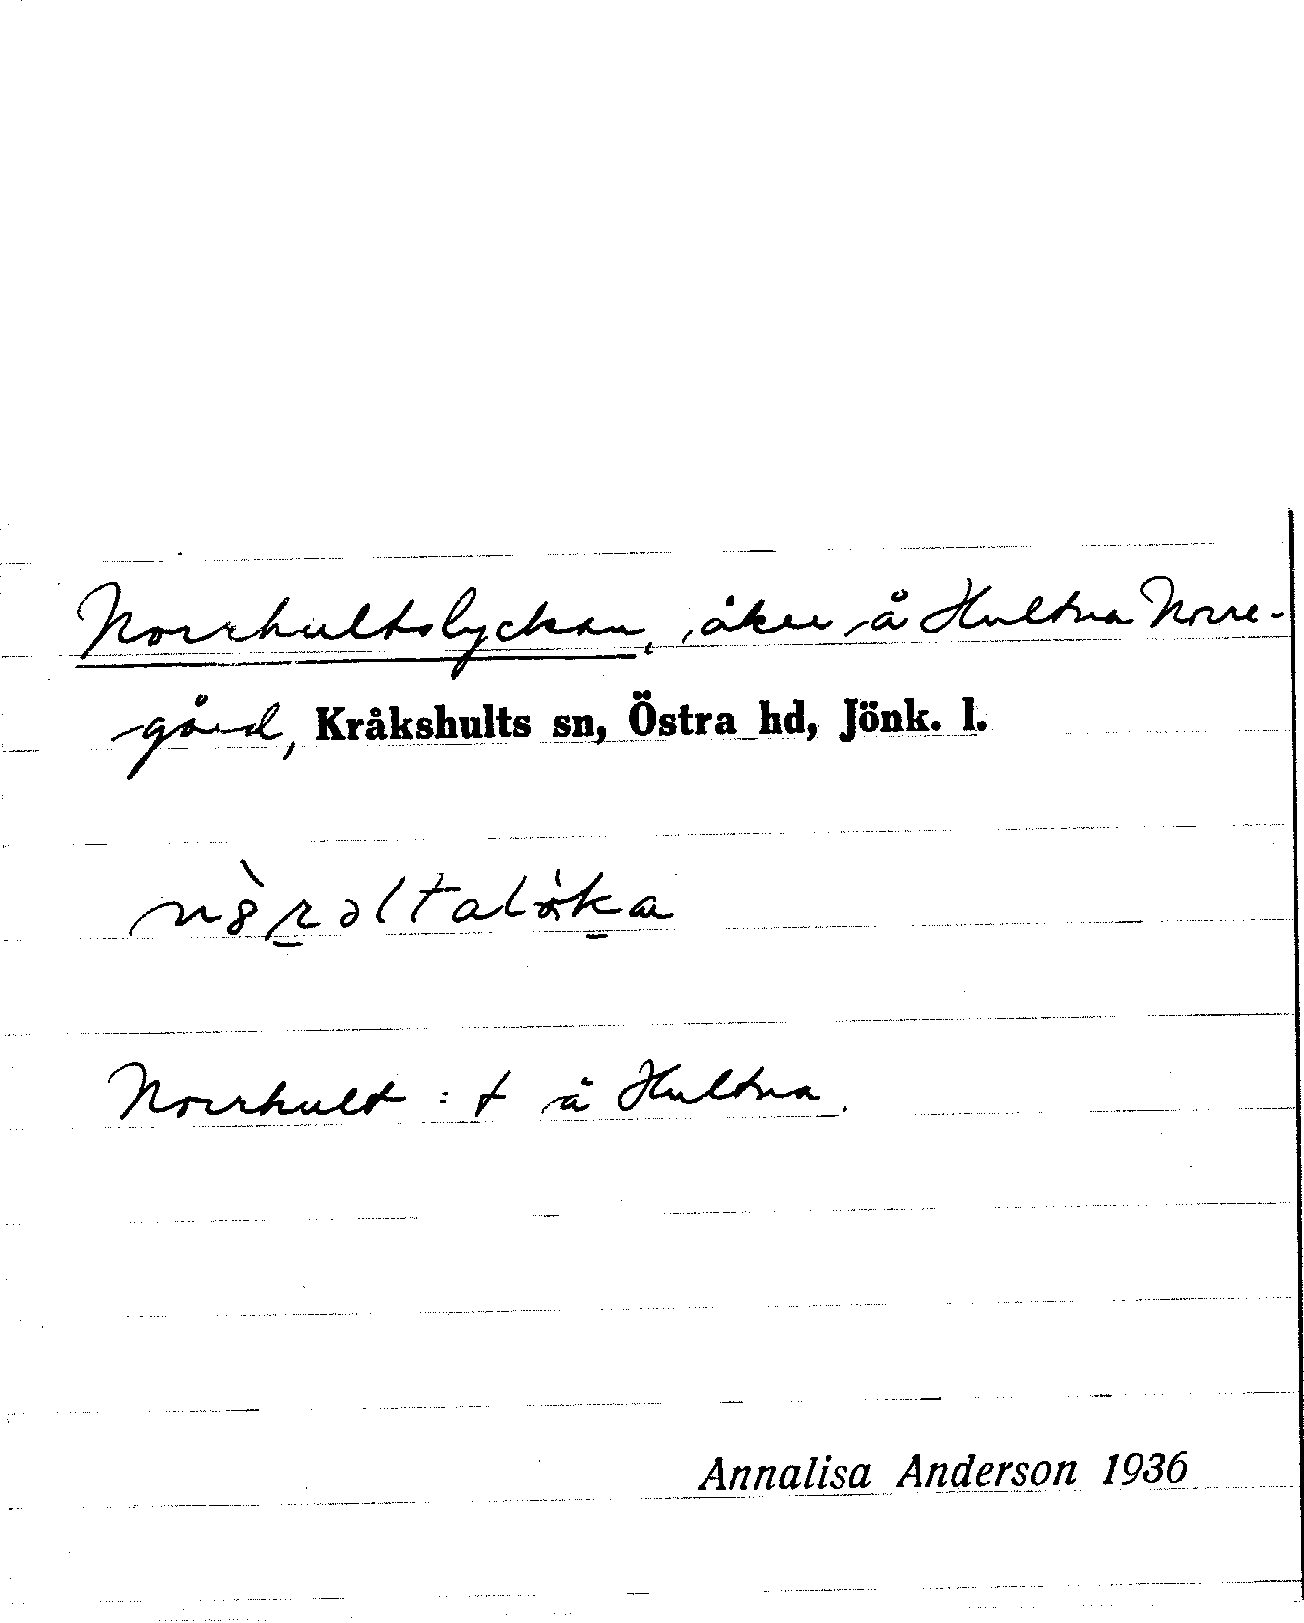 Norrhultslyckan, åker å Hultna Norre-
gård, Kråkshults sn, Östra hd, Jönk. l.
Norrhult : t å Hultna.
Annalisa Anderson 1936